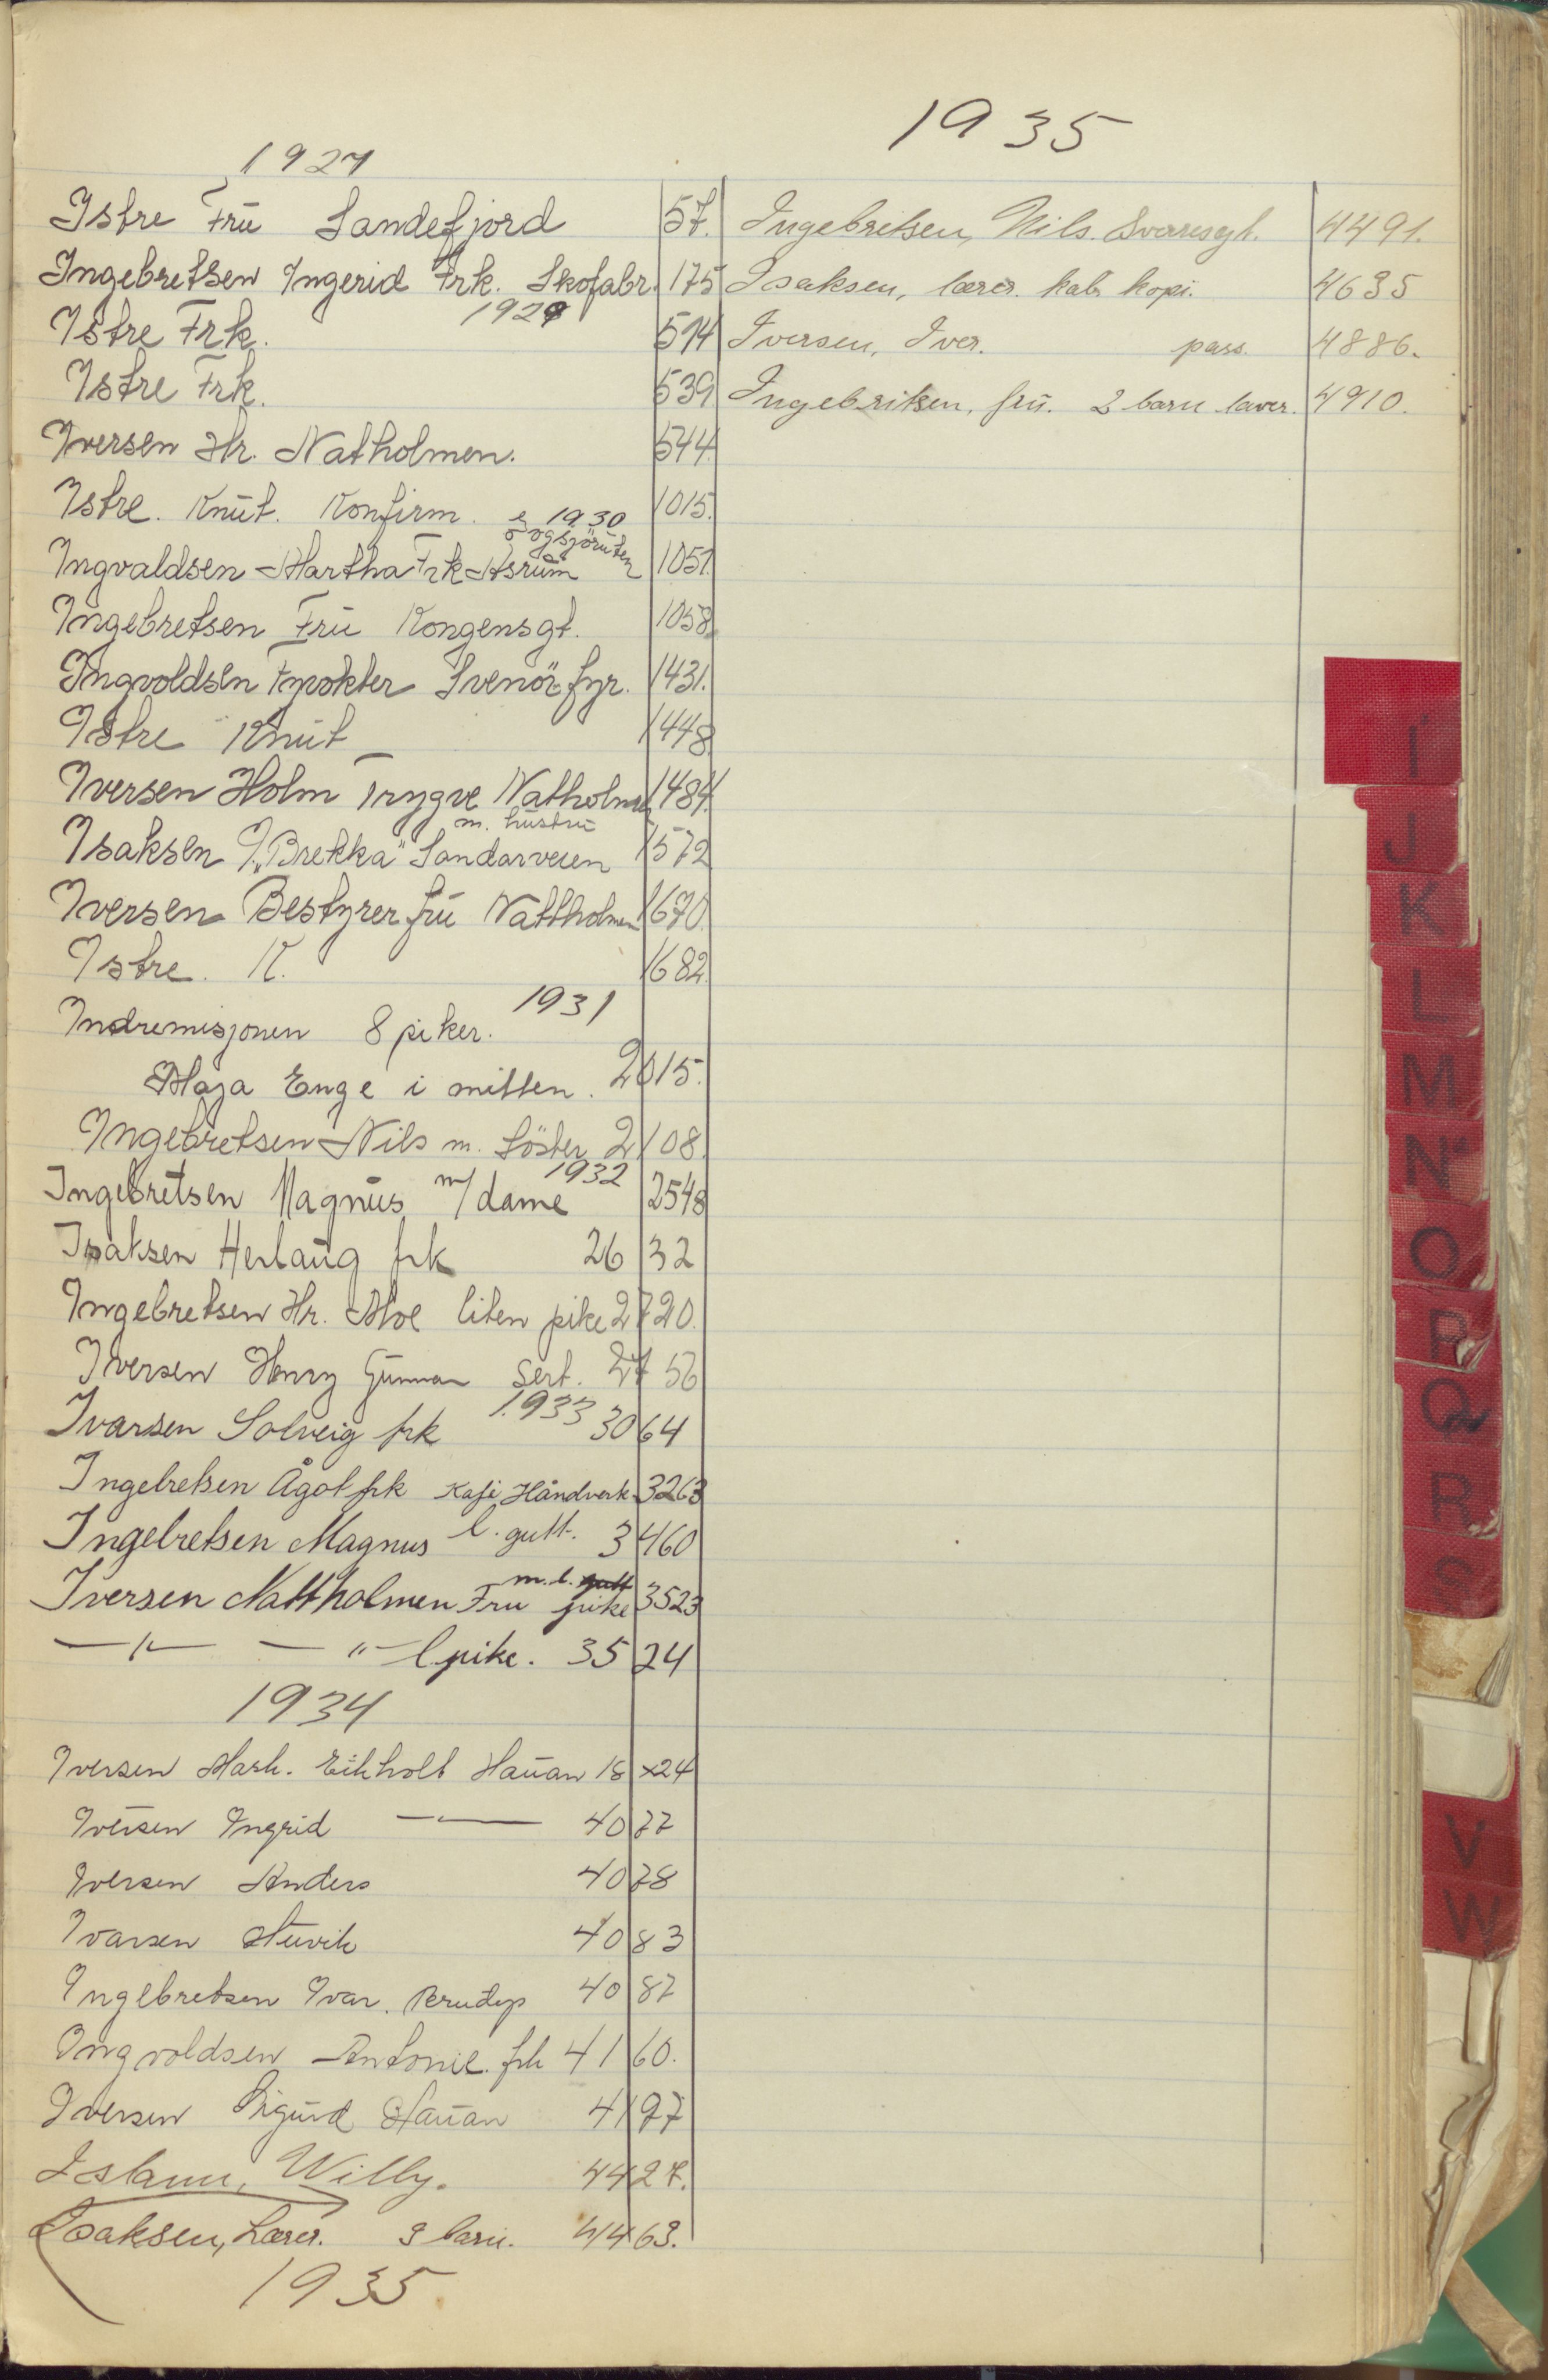 1927
Istre Frü Sandefjord 57.
Ingebretsen Ingerid Frk. Skofabr. 175
1929
Istre Frk. 514
Istre Frk. 539
Iversen Hr. Natholmen. 544
Istre. Knüt. Konfirm. 1015.
1930
Ingvaldsen Martha Frk Åsrüm 1051.
Ingebretsen Frü Kongensgt. 1058
Ingvoldsen Fyrvokter Svenör fyr. 1431.
Istre Knüt 1448
Iversen Holm Trygve Natholmen 1484.
m. hüstrü
Isaksen "Brekka" Sandarveien 1572
Iversen Bestyrer frü Nattholmen 1670.
Istre. K. 1682
1931
Indremisjonen 8 piker.
Maja Enge i mitten. 2015.
Ingebretsen Nils m. Söster 2108.
1932
Ingebretsen Magnüs m/dame 2548
Isaksen Herlaüg frk 2632
Ingebretsen Hr. Moe liten pike 2720.
Iversen Henry Günnar sert. 2756
1933
Ivarsen Solveig frk 3064
Ingebretsen Ågot frk Kafe Håndverk. 3263
Ingebretsen Magnus l. gutt. 3460
m. l. gutt
Iversen Nattholmen Fru pike 3523
—"— —"— l. pike. 3524
1934
Iversen Mark. Eikholt Haüan 18x24
Iversen Ingrid —"— 4077
Iversen Anders 4078
Ivarsen 4083
Ingebretsen Ivar. 4087
Ingvoldsen Antonie. frk 4160.
Iversen Sigürd Haüan 4197
Islann, Willy. 4427.
Isaksen, Lærer. 3 barn. 4463.
1935.
1935
Ingebretsen, Nils. Sverresgt. 4491.
Isaksen, lærer. kab. kopi. 4635
Iversen, Iver. pass. 4886.
Ingebritsen, frü. 2 barn 4910.
I
J
K
L
M
N
O
P
Q
R
S
V
W